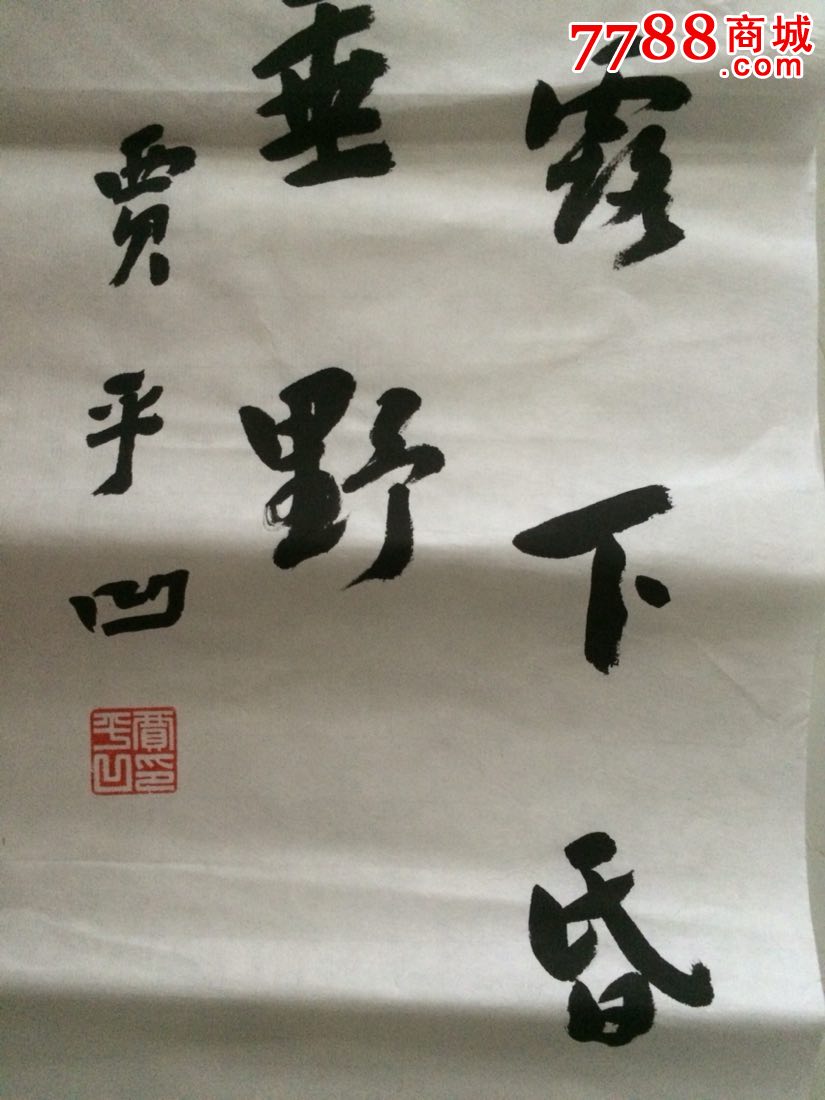 7788商城
.com
露下昏
垂野
贾平凹
賈印
平凹